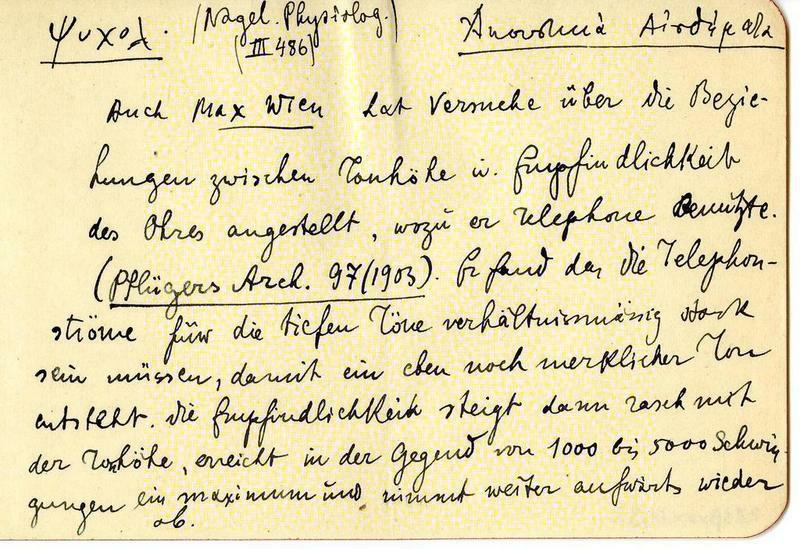 Ψυχολ. (Nagel. Physiolog. III 486) Ἀκουστικὰ Αἰσθήματα
Auch Max Wien hat Versuche über die Bezie-
hungen zwischen Tonhöhe u. Empfindlichkeit
des Ohres angestellt, wozu er Telephone benützte.
(Pflügers Arch. 97/1903). Er fand das die Telephon-
ströme für die tiefen Töne verhältnissmässig stark
sein müssen, damit ein eben noch merklicher Ton
entsteht. Die Empfindlichkeit steigt dann rasch mit
der Tonhöhe, erreicht in der Gegend von 1000 bis 5000 Schwin-
gungen ein maximum und nimmt weiter aufwärts wieder
ab.